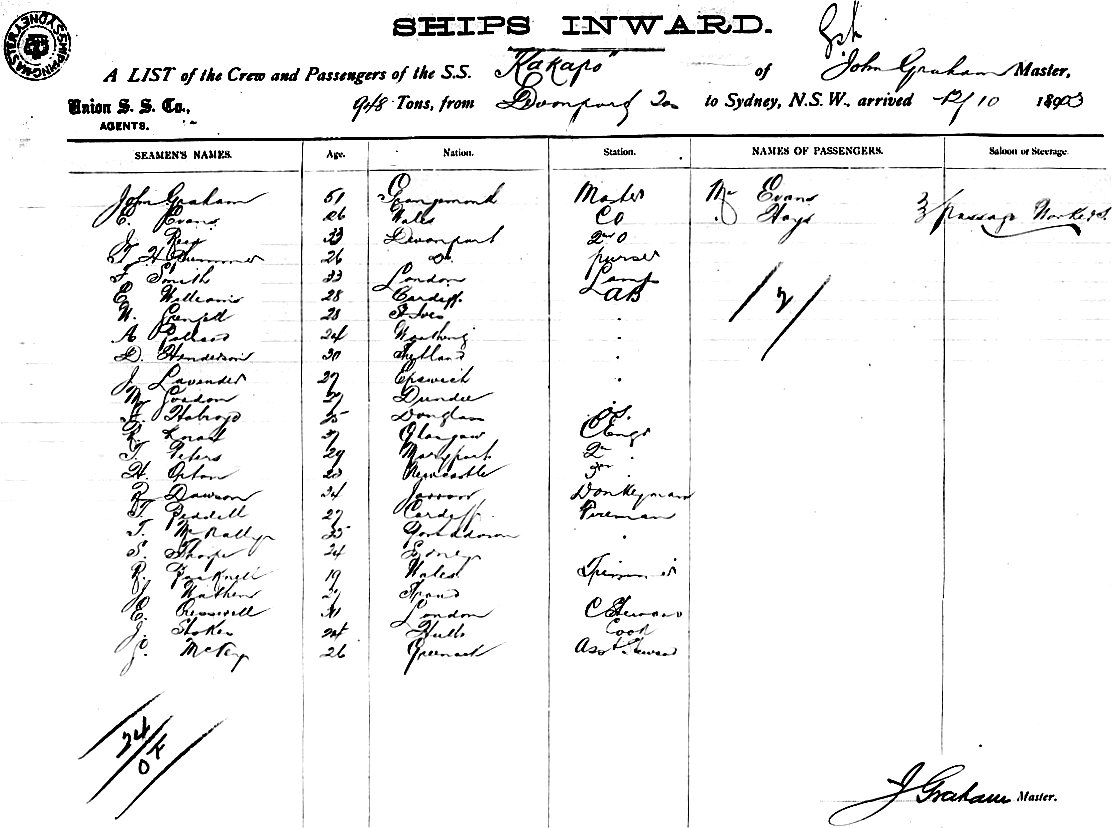 SYDNEY SHIPPING MASTER
SHIPS INWARD.
A LIST of the Crew and Passengers of the S.S. "Kakapo" of John Graham Master,
Union S. S. Co., 948 Tons, from Devonport Tas to Sydney, N.S.W., arrived 12/10 1903
AGENTS.
SEAMEN'S NAMES. Age. Nation. Station. NAMES OF PASSENGERS. Saloon or Steerage.
John Graham 51 Master Mr Evans
E. Evans 26 Wales CO Hays passage Workers
J Reid 33 Devonport 2nd O
T. H. 26 Do purser
F Smith 33 London Lamp
E Williams 28 Cardiff AB
W. Grenfell 28 St Ives "
A 24 Worthing "
D. Henderson 30 Shetland "
J Lavender 27 Epswich "
Gordon 27 Dundee
25 Douglas O.S.
R. 27 Glasgow C Engr
T. Peters 29 Maryport 2nd "
H. Opton 23 Newcastle 3rd "
R Dawson 24 Jarrow Donkeyman
T. 27 Cardiff Fireman
T. McNally 25 Portadown "
S. Thorpe 24 Sydney
R. 19 Wales Trimmer
J Wathen 27
E. Cresswell 31 London C Steward
J. Stokes 24 Hull Cook
J. McKay 26 Greenock Asst Steward
/2/
24
J Graham Master.